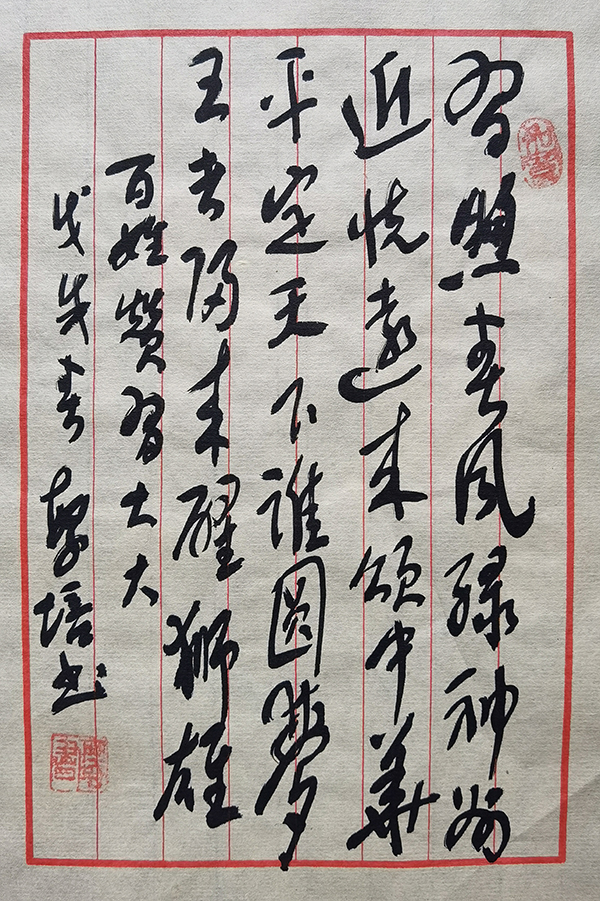 習照春风绿神州
近悦遠来颂中華
平定天下谁圆夢
王者归来醒狮雄
百姓赞習大大
戊戌春 培书